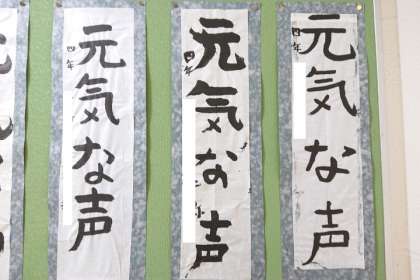 元気な声
四年
元気な声
四年
元気な声
四年